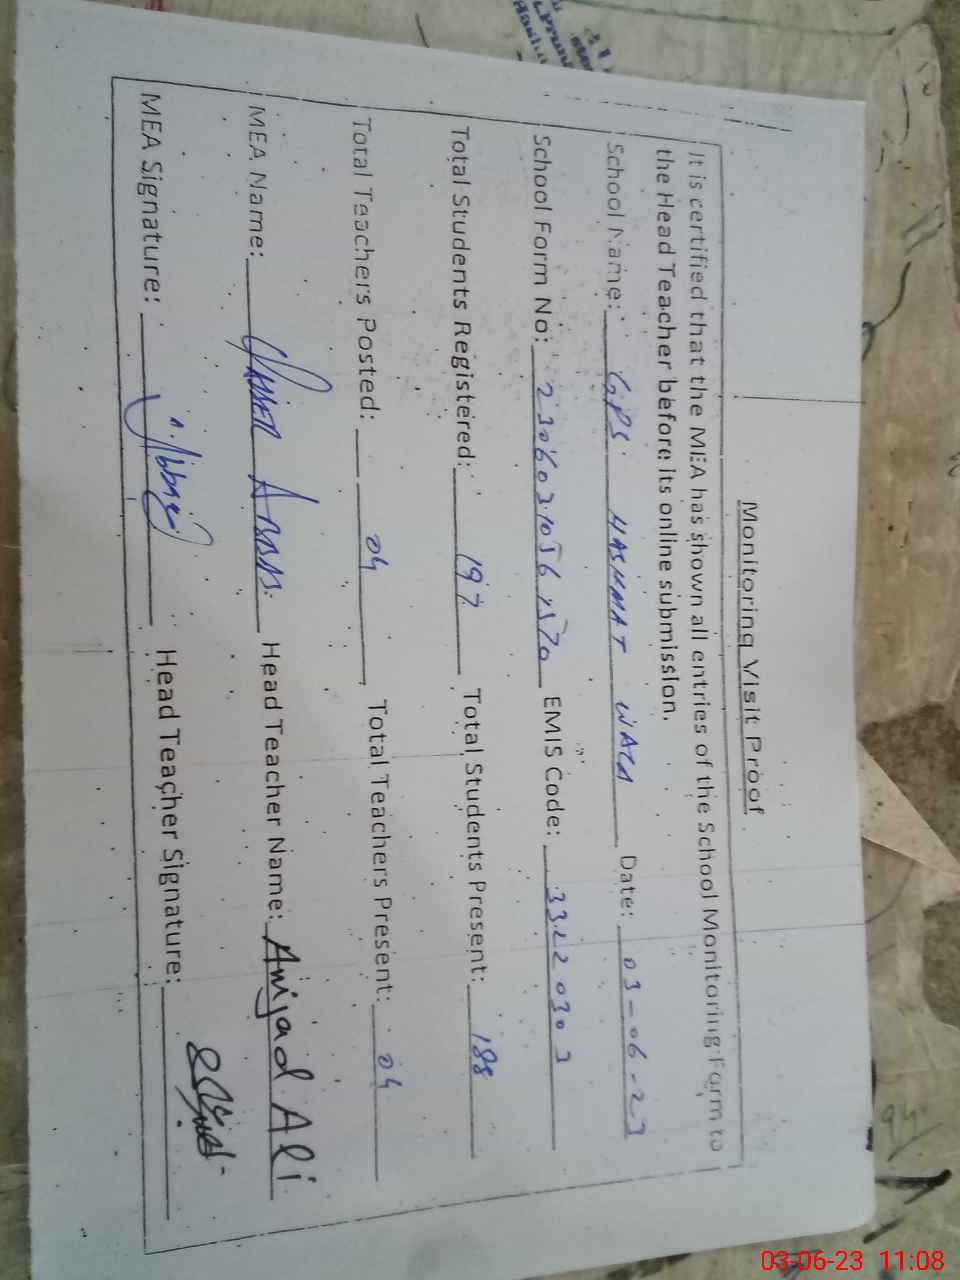 Monitoring Visit Proof
It is certified that the MEA has shown all entries of the School Monitoring Form to
the Head Teacher before its online submission.
School Name: GPS HASHMAT WALA Date: 03-06-23
School Form No: EMIS Code: 33220303
Total Students Registered: 197 Total Students Present: 188
Total Teachers Posted: 04 Total Teachers Present: 04
MEA Name: YASSER ABBAS. Head Teacher Name: Amjad Ali
MEA Signature: Head Teacher Signature:
03-06-23 11:08